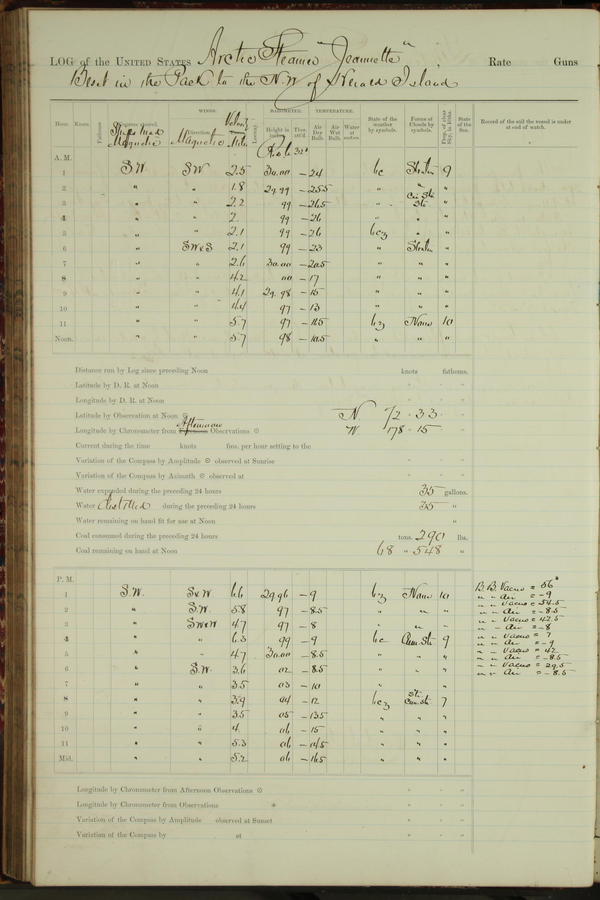 LOG of the UNITED STATES Arctic Steamer "Jeannette" Rate Guns
Beset in the Pack to the N.W. of Herald Island
WINDS. BAROMETER. TEMPERATURE.
Hour. Knots. Fathoms. Ship's Head Magnetic Direction Magnetic Velocity Miles Height in inches Ther. att'd Air Dry Bulb. Air Wet Bulb. Water at surface. State of the weather by symbols. Forms of Clouds by symbols. Prop. of clear Sky, in 10ths. State of the Sea. Record of the sail the vessel is under at end of watch.
A. M.
1 S.W. SW 2.5 30.00 -24 bc Stratus 9
2 " " 1.8 29.99 -25.5 " " "
3 " " 2.2 99 -26.5 " Cir. Str. "
4 " " 2. 99 -26 " " "
5 " " 2.1 99 -26 bcz " "
6 " SWxS 2.1 99 -23 " Stratus "
7 " " 2.6 30.00 -20.5 " " "
8 " " 4.2 00 -17 " " "
9 " " 4.1 29.98 -15 " " "
10 " " 4.4 97 -13 " " "
11 " " 5.7 97 -11.5 bz None 10
Noon. " " 5.7 98 -10.5 " " "
Distance run by Log since preceding Noon knots fathoms.
Latitude by D. R. at Noon
Longitude by D. R. at Noon
Latitude by Observation at Noon N 72 . 33
Longitude by Chronometer from Afternoon Observations W 178 . 15
Current during the time knots fms. per hour setting to the
Variation of the Compass by Amplitude observed at Sunrise
Variation of the Compass by Azimuth observed at
Water expended during the preceding 24 hours 35 gallons.
Water distilled during the preceding 24 hours 35 "
Water remaining on hand fit for use at Noon "
Coal consumed during the preceding 24 hours tons. 290 lbs.
Coal remaining on hand at Noon 68 " 548 "
P. M.
1 S.W. SxW 6.6 29.96 -9 bz None 10
2 " S.W. 5.8 97 -8.5 " " "
3 " SWxW 4.7 97 -8 " " "
4 " " 6.3 99 -9 bc Cum. Str. 9
5 " " 4.7 30.00 -8.5 " " "
6 " S.W. 3.6 02 -8.5 " " "
7 " " 3.5 03 -10 " " "
8 " " 3.9 04 -12 bcz Str. Cum. Str. 7
9 " " 3.5 05 -13.5 " " "
10 " " 4. 06 -15 " " "
11 " " 5.3 06 -14.5 " " "
Mid. " " 5.2 06 -16.5 " " "
B.B. Vacuo = 56°
" " Air = -9
" " Vacuo = 54.5
" " Air = -8.5
" " Vacuo = 42.5
" " Air = -8
" " Vacuo = 7
" " Air = -9
" " Vacuo = 42
" " Air = -8.5
" " Vacuo = 29.5
" " Air = -8.5
Longitude by Chronometer from Afternoon Observations
Longitude by Chronometer from Observations
Variation of the Compass by Amplitude observed at Sunset
Variation of the Compass by at